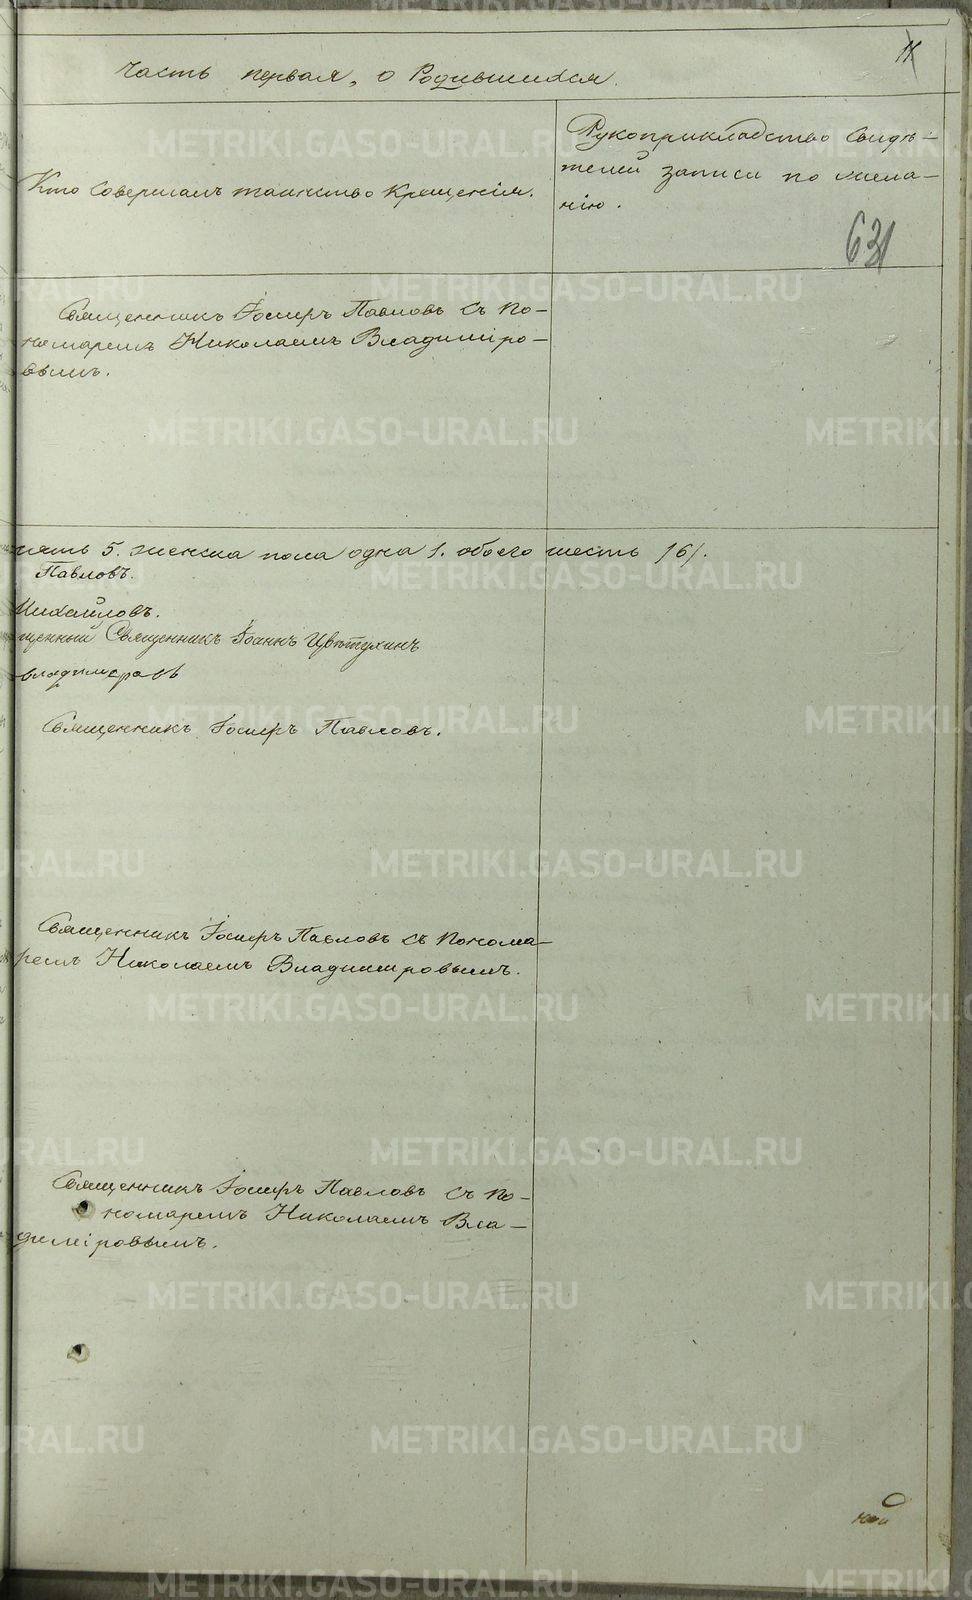 11
Часть первая, о Родившихся.
Кто совершалъ таинство крещенія.
Рукоприкладство свидѣ-
телей записи по жела-
нію.
631
Священникъ Іосифъ Павловъ съ по-
номаремъ Николаемъ Владиміро-
вымъ.
пять 5. женска пола одна 1. обоего шесть /6/.
Павловъ.
Михайловъ.
Священникъ Іоаннъ Цвѣтухинъ
Владимировъ
Священникъ Іосифъ Павловъ.
Священникъ Іосифъ Павловъ съ понома-
ремъ Николаемъ Владиміровымъ.
Священникъ Іосифъ Павловъ съ по-
номаремъ Николаемъ Вла-
диміровымъ.
METRIKI.GASO-URAL.RU